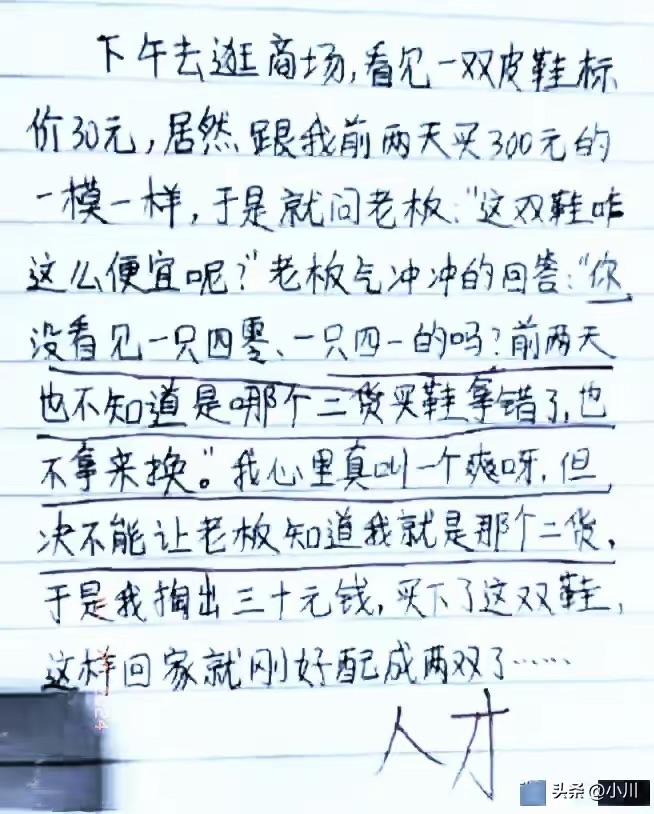 下午去逛商场,看见一双皮鞋标
价30元,居然跟我前两天买300元的
一模一样,于是就问老板:"这双鞋咋
这么便宜呢?"老板气冲冲的回答:"你
没看见一只四零、一只四一的吗?前两天
也不知道是哪个二货买鞋拿错了,也
不拿来换。"我心里真叫一个爽呀,但
决不能让老板知道我就是那个二货,
于是我掏出三十元钱,买下了这双鞋,
这样回家就刚好配成两双了……
人才
头条@小川